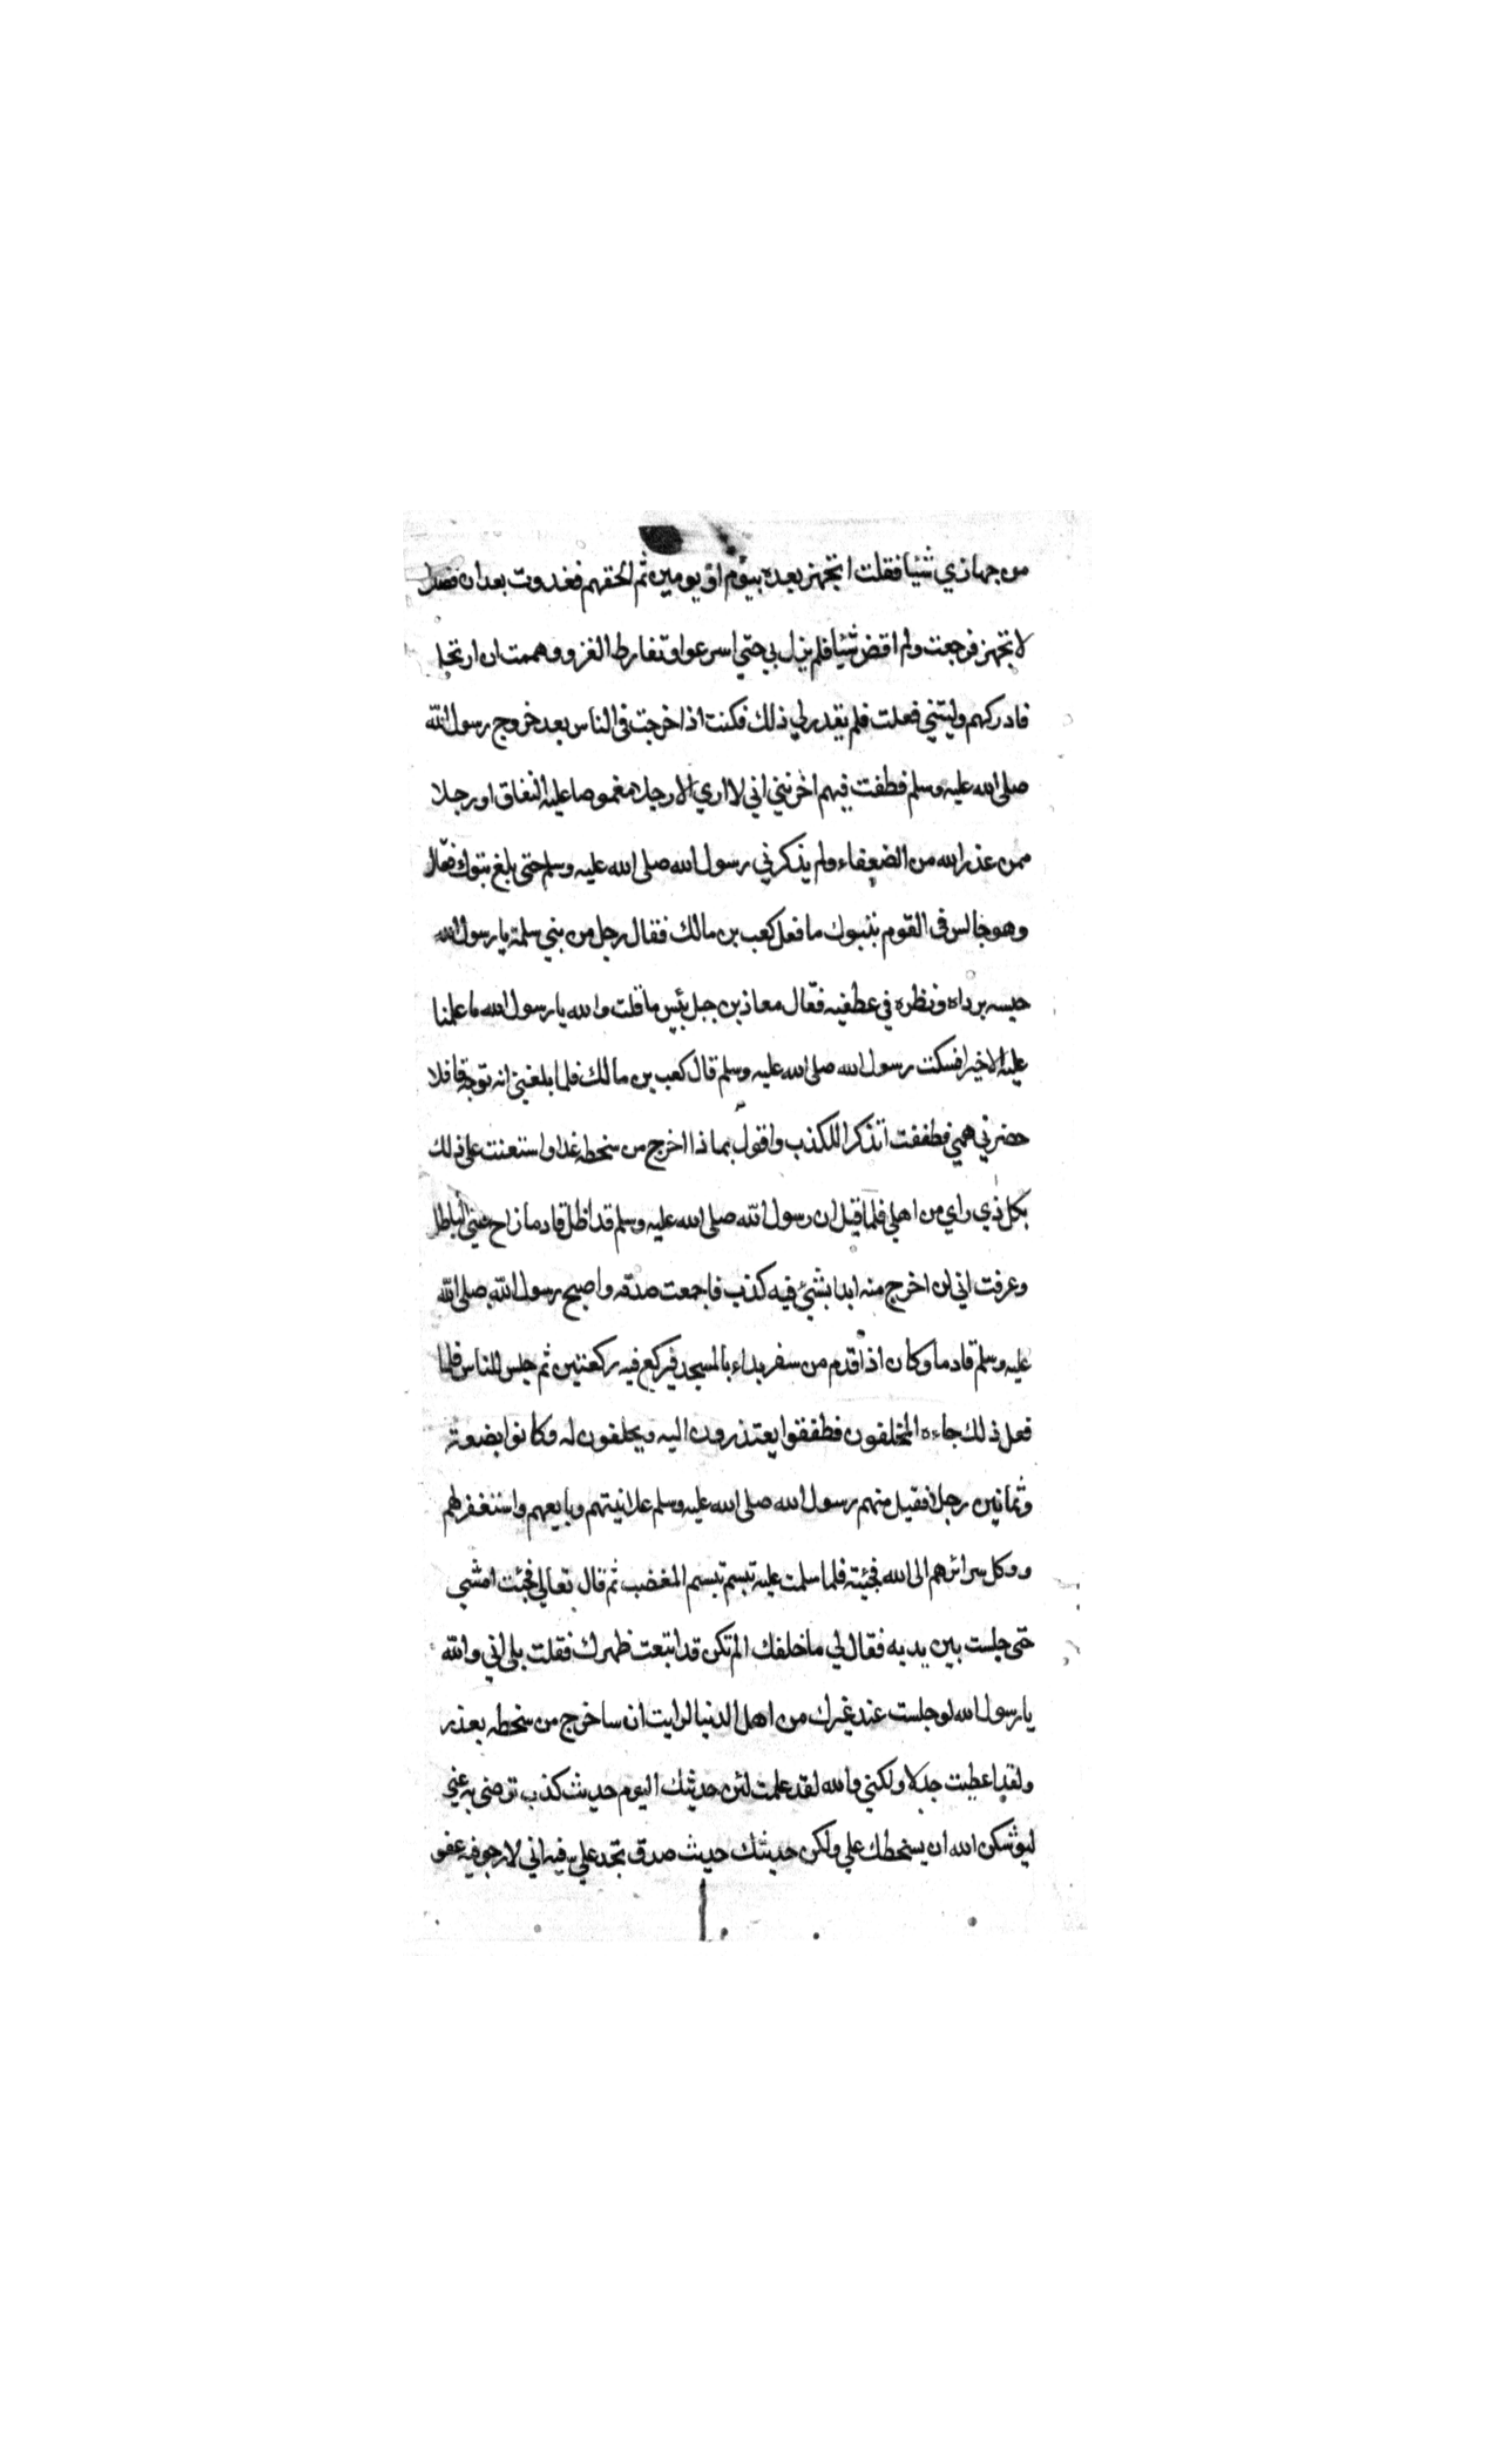 من جهازي شيئا فقلت اتجهز بعده بيوم او يومين ثم الحقهم فغدوت بعد ان فصلوا
لاتجهز فرجعت ولم اقض شيئا فلم يزل بي حتي اسرعوا وتفارط الغزو وهممت ان ارتحل
فادركهم وليتني فعلت فلم يقدر لي ذلك فكنت اذا خرجت في الناس بعد خروج رسول الله
صلي الله عليه وسلم فطفت فيهم احزنني اني لا اري الا رجلا مغموصا عليه النفاق او رجلا
ممن عذر الله من الضعفاء ولم يذكرني رسول الله صلي الله عليه وسلم حتى بلغ تبوك فقال
وهو جالس في القوم بتبوك ما فعل كعب بن مالك فقال رجل من بني سلمة يا رسول الله
حبسه برداه ونظره في عطفيه فقال معاذ بن جبل بئس ما قلت والله يا رسول الله ما علمنا
عليه الا خيرا فسكت رسول الله صلي الله عليه وسلم قال كعب بن مالك فلما بلغني انه توجه قافلا
حضرني همي فطفقت اتذكر الكذب واقول بماذا اخرج من سخطه غدا واستعنت علي ذلك
بكل ذي راي من اهلي فلما قيل ان رسول الله صلي الله عليه وسلم قد اظل قادما زاح عني الباطل
وعرفت اني لن اخرج منه ابدا بشئ فيه كذب فاجمعت صدقه واصبح رسول الله صلي الله
عليه وسلم قادما وكان اذا قدم من سفر بداء بالمسجد فيركع فيه ركعتين ثم جلس للناس فلما
فعل ذلك جاءه المخلفون فطفقوا يعتذرون اليه ويحلفون له وكانوا بضعة
وثمانين رجلا فقبل منهم رسول الله صلي الله عليه وسلم علانيتهم وبايعهم واستغفر لهم
ووكل سرائرهم الى الله فجئته فلما سلمت عليه تبسم تبسم المغضب ثم قال تعالي فجئت امشي
حتى جلست بين يديه فقال لي ما خلفك الم تكن قد ابتعت ظهرك فقلت بلي اني والله
يا رسول الله لو جلست عند غيرك من اهل الدنيا لرايت ان ساخرج من سخطه بعذر
ولقد اعطيت جدلا ولكني والله لقد علمت لئن حدثتك اليوم حديث كذب ترضى به عني
ليوشكن الله ان يسخطك علي ولكن حديثك حديث صدق تجد علي فيه اني لارجو فيه عفو